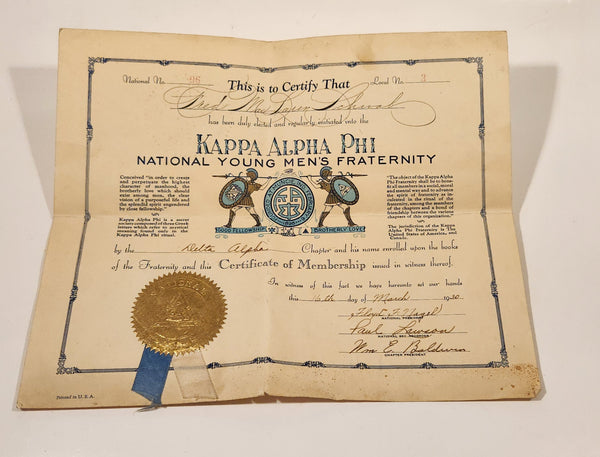 National No. 96
This is to Certify That
Local No. 3
Fred
has been duly elected and regularly initiated into the
KAPPA ALPHA PHI
NATIONAL YOUNG MEN'S FRATERNITY
Conceived "in order to
create and perpetuate the highest
character of manhood, the
brotherly love which should
exist among men, the clear
vision of a purposeful life and
the splendid spirit engendered
by close fellowship."
Kappa Alpha Phi is a secret
society composed of three Greek
letters which refer to mystical
meaning found only in the
Kappa Alpha Phi ritual.
"The object of the Kappa Alpha
Phi Fraternity shall be to benefit
all members in a social, moral
and mental way and to advance
the spirit of fraternity as
inculcated in the ritual of the
fraternity, among the members
of the chapters and a bond of
friendship between the various
chapters of this organization."
The jurisdiction of the Kappa
Alpha Phi Fraternity is The
United States of America, and
Canada.
GOOD FELLOWSHIP
BROTHERLY LOVE
by the Delta Alpha Chapter and his name enrolled upon the books
of the Fraternity and this Certificate of Membership issued in witness thereof.
In witness of this fact we have hereunto set our hands
this 16th day of March 1930
Floyd F.
NATIONAL PRESIDENT
Paul Lawson
NATIONAL SEC.
Wm E. Baldwin
CHAPTER PRESIDENT
Printed in U.S.A.